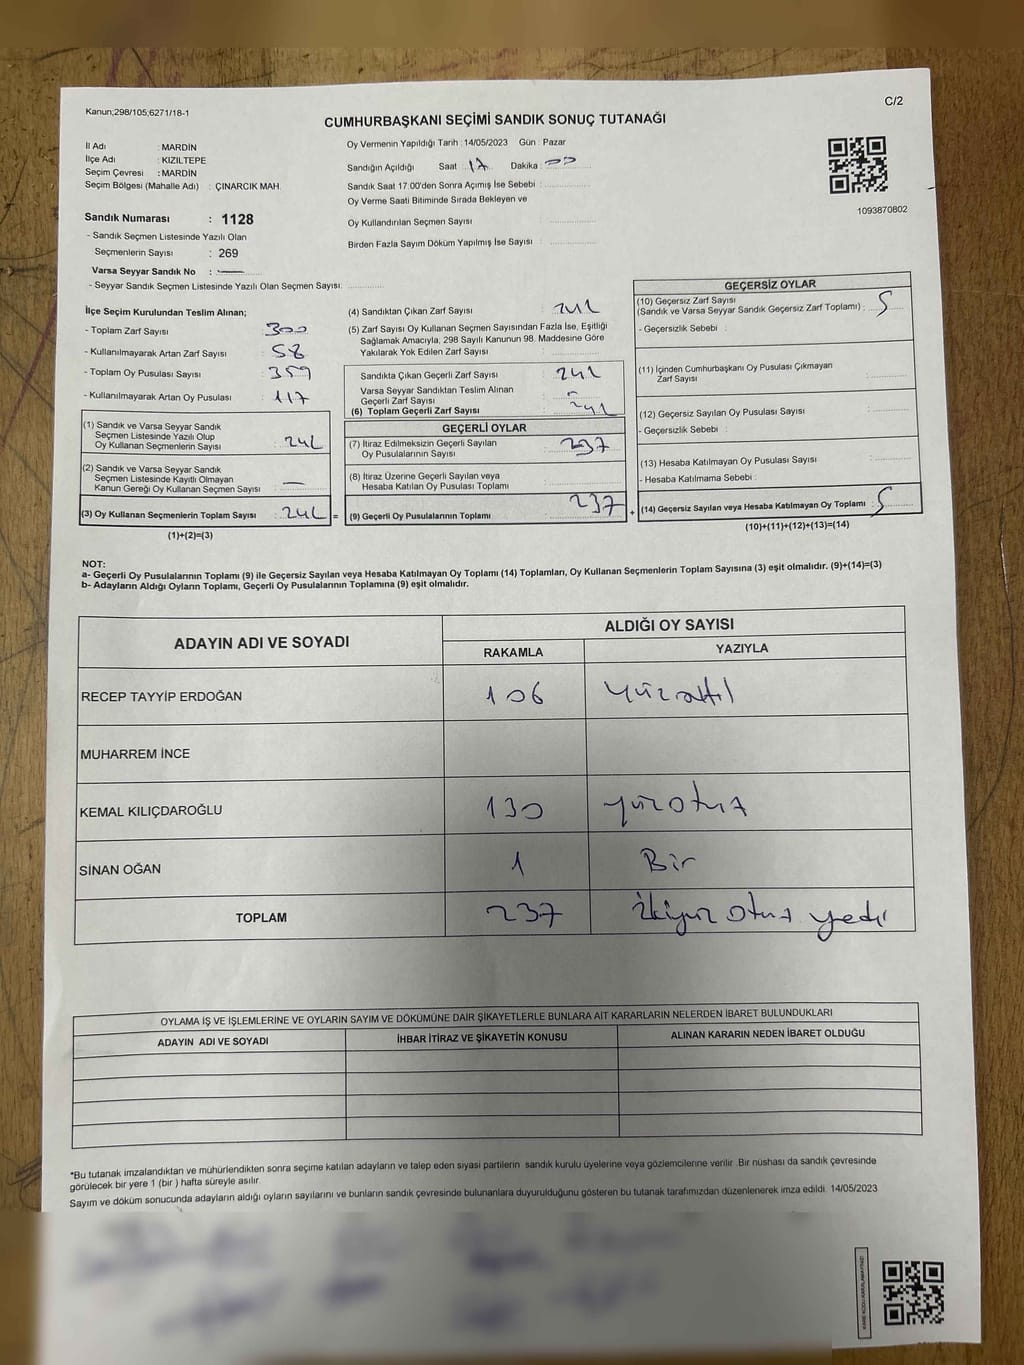 Kanun;298/105;6271/18-1
C/2
CUMHURBAŞKANI SEÇİMİ SANDIK SONUÇ TUTANAĞI
İl Adı : MARDİN
İlçe Adı : KIZILTEPE
Seçim Çevresi : MARDİN
Seçim Bölgesi (Mahalle Adı) : ÇINARCIK MAH.
Sandık Numarası : 1128
- Sandık Seçmen Listesinde Yazılı Olan
Seçmenlerin Sayısı : 269
Varsa Seyyar Sandık No : —
- Seyyar Sandık Seçmen Listesinde Yazılı Olan Seçmen Sayısı:
Oy Vermenin Yapıldığı Tarih :14/05/2023 Gün : Pazar
Sandığın Açıldığı Saat : 17 Dakika : 00
Sandık Saat 17.00'den Sonra Açımış İse Sebebi :
Oy Verme Saati Bitiminde Sırada Bekleyen ve
Oy Kullandırılan Seçmen Sayısı :
Birden Fazla Sayım Döküm Yapılmış İse Sayısı :
1093870802
İlçe Seçim Kurulundan Teslim Alınan;
- Toplam Zarf Sayısı : 300
- Kullanılmayarak Artan Zarf Sayısı : 58
- Toplam Oy Pusulası Sayısı : 359
- Kullanılmayarak Artan Oy Pusulası : 117
(1) Sandık ve Varsa Seyyar Sandık
Seçmen Listesinde Yazılı Olup
Oy Kullanan Seçmenlerin Sayısı : 242
(2) Sandık ve Varsa Seyyar Sandık
Seçmen Listesinde Kayıtlı Olmayan
Kanun Gereği Oy Kullanan Seçmen Sayısı : —
(3) Oy Kullanan Seçmenlerin Toplam Sayısı : 242 =
(1)+(2)=(3)
(4) Sandıktan Çıkan Zarf Sayısı : 242
(5) Zarf Sayısı Oy Kullanan Seçmen Sayısından Fazla İse, Eşitliği
Sağlamak Amacıyla, 298 Sayılı Kanunun 98. Maddesine Göre
Yakılarak Yok Edilen Zarf Sayısı :
Sandıkta Çıkan Geçerli Zarf Sayısı : 242
Varsa Seyyar Sandıktan Teslim Alınan
Geçerli Zarf Sayısı :
(6) Toplam Geçerli Zarf Sayısı : 242
GEÇERLİ OYLAR
(7) İtiraz Edilmeksizin Geçerli Sayılan
Oy Pusulalarının Sayısı : 237
(8) İtiraz Üzerine Geçerli Sayılan veya
Hesaba Katılan Oy Pusulası Toplamı :
(9) Geçerli Oy Pusulalarının Toplamı : 237 +
GEÇERSİZ OYLAR
(10) Geçersiz Zarf Sayısı
(Sandık ve Varsa Seyyar Sandık Geçersiz Zarf Toplamı) : 5
- Geçersizlik Sebebi :
(11) İçinden Cumhurbaşkanı Oy Pusulası Çıkmayan
Zarf Sayısı :
(12) Geçersiz Sayılan Oy Pusulası Sayısı :
- Geçersizlik Sebebi :
(13) Hesaba Katılmayan Oy Pusulası Sayısı :
- Hesaba Katılmama Sebebi :
(14) Geçersiz Sayılan veya Hesaba Katılmayan Oy Toplamı : 5
(10)+(11)+(12)+(13)=(14)
NOT:
a- Geçerli Oy Pusulalarının Toplamı (9) ile Geçersiz Sayılan veya Hesaba Katılmayan Oy Toplamı (14) Toplamları, Oy Kullanan Seçmenlerin Toplam Sayısına (3) eşit olmalıdır. (9)+(14)=(3)
b- Adayların Aldığı Oyların Toplamı, Geçerli Oy Pusulalarının Toplamına (9) eşit olmalıdır.
ADAYIN ADI VE SOYADI
ALDIĞI OY SAYISI
RAKAMLA YAZIYLA
RECEP TAYYİP ERDOĞAN 106 yüzaltı
MUHARREM İNCE
KEMAL KILIÇDAROĞLU 130 yüzotuz
SİNAN OĞAN 1 Bir
TOPLAM 237 ikiyüz otuz yedi
OYLAMA İŞ VE İŞLEMLERİNE VE OYLARIN SAYIM VE DÖKÜMÜNE DAİR ŞİKAYETLERLE BUNLARA AİT KARARLARIN NELERDEN İBARET BULUNDUKLARI
ADAYIN ADI VE SOYADI İHBAR İTİRAZ VE ŞİKAYETİN KONUSU ALINAN KARARIN NEDEN İBARET OLDUĞU
*Bu tutanak imzalandıktan ve mühürlendikten sonra seçime katılan adayların ve talep eden siyasi partilerin sandık kurulu üyelerine veya gözlemcilerine verilir .Bir nüshası da sandık çevresinde
görülecek bir yere 1 (bir ) hafta süreyle asılır.
Sayım ve döküm sonucunda adayların aldığı oyların sayılarını ve bunların sandık çevresinde bulunanlara duyurulduğunu gösteren bu tutanak tarafımızdan düzenlenerek imza edildi. 14/05/2023